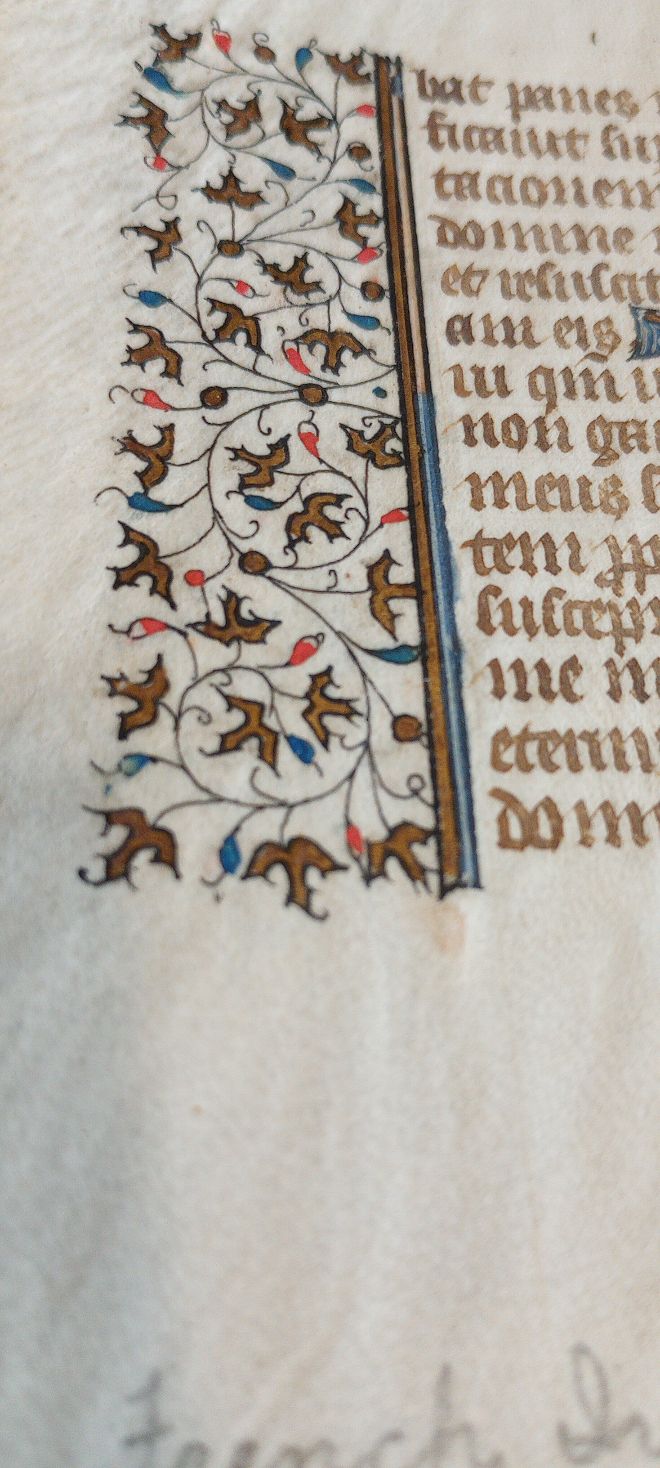 bat panes
ficauit sup
tacionem
domine
et resuscit
am eis
ui qm̄
non gau
meus
tem
suscepi
me
eternu
domi
French